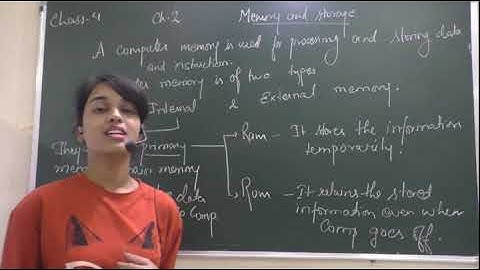 Class-4 Ch.2 Memory and storage
A computer memory is used for processing and storing data
and instruction.
memory is of two types
Internal & External memory.
They primary
memory memory
data
Comp.
Ram - It stores the information
temporarily.
Rom - It retains the stored
information even when
Comp goes off.